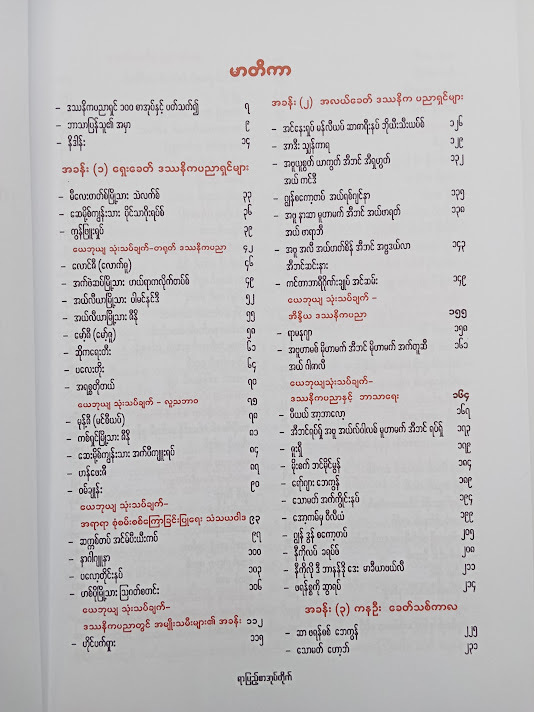 မာတိကာ
– ဒဿနိကပညာရှင် ၁၀၀ စာအုပ်နှင့် ပတ်သက်၍ ၇
– ဘာသာပြန်သူ၏ အမှာ ၉
– နိဒါန်း ၁၄
အခန်း (၁) ရှေးခေတ် ဒဿနိကပညာရှင်များ
– မီလေးတတ်စ်မြို့သား သဲလက်စ် ၃၃
– ဆေမို့စ်ကျွန်းသား ပိုင်သာဂိုးရပ်စ် ၃၆
– ကွန်ဖြူးရှပ် ၃၉
ယေဘုယျ သုံးသပ်ချက်–တရုတ် ဒဿနိကပညာ ၄၂
– လောင်ဇီ (လောက်ဇူ) ၄၆
– အက်ဖဲဆပ်မြို့သား ဟယ်ရာကလိုက်တပ်စ် ၄၉
– အယ်လီယာမြို့သား ပါမင်နင်ဒီ ၅၂
– အယ်လီယာမြို့သား ဇီနို ၅၅
– မော့်ဇီ (မော့်ဇူ) ၅၈
– ဆိုကရေးတီး ၆၁
– ပလေးတိုး ၆၄
– အရစ္စတိုတယ် ၇၀
ယေဘုယျ သုံးသပ်ချက် – လူ့သဘာဝ ၇၅
– မုန့်ဇီ (မင်စီယပ်) ၇၈
– ကစ်ရှင်မြို့သား ဇီနို ၈၁
– ဆေးမို့စ်ကျွန်းသား အက်ပီကျူးရပ် ၈၄
– ဟန်ဖေးဇီ ၈၇
– ဝမ်ချုန်း ၉၀
ယေဘုယျ သုံးသပ်ချက်–
အရာရာ စုံစမ်းစစ်ကြောခြင်းပြုရေး သံသယဝါဒ ၉၃
– ဆက္ကစ်တပ် အင်မ်ပီးရီးကပ် ၉၇
– နာဂါဂျူနာ ၁၀၀
– ပလော့တိုင်းနပ် ၁၀၃
– ဟစ်ပိုမြို့သား ဩဂတ်စတင်း ၁၀၆
ယေဘုယျ သုံးသပ်ချက်–
ဒဿနိကပညာတွင် အမျိုးသမီးများ၏ အခန်း ၁၁၂
– ဟိုင်ပက်ရှား ၁၁၅
အခန်း (၂) အလယ်ခေတ် ဒဿနိက ပညာရှင်များ
– အင်နေးရှပ် မန်လီယပ် ဆာဗာရီးနပ် ဘိုယီးသီးယပ်စ် ၁၂၆
– အာဒီး သျှန်ကာရ ၁၂၉
– အဗူယူစွတ် ယာကွတ် အီဘင် အီရှုဟွတ် ၁၃၂
အယ် ကင်ဒီ
– ဂျွန်စကော့တပ် အယ်ရစ်ဂျင်နာ ၁၃၅
– အဗူ နာဆာ မူဟာမက် အီဘင် အယ်ဖာရတ် ၁၃၈
အယ် ဖာရာဘီ
– အဗူ အလီ အယ်ဟတ်စိန် အီဘင် အဗ္ဗဒယ်လာ ၁၄၃
အီဘင်ဆင်းနား
– ကင်တာဘာရီဂိုဏ်းချုပ် အင်ဆမ်း ၁၄၉
ယေဘုယျ သုံးသပ်ချက် –
အိန္ဒိယ ဒဿနိကပညာ ၁၅၅
– ရာမနူဂျာ ၁၅၈
– အဗူဟာမစ် မိုဟာမက် အီဘင် မိုဟာမက် အက်တူဆီ ၁၆၁
အယ် ဂါဇာလီ
ယေဘုယျသုံးသပ်ချက်–
ဒဿနိကပညာနှင့် ဘာသာရေး ၁၆၄
– ပီယယ် အာ့ဘာလော့ ၁၆၇
– အီဘင်ရပ်ရှ် အဗူ အယ်လ်ဝါလစ် မူဟာမက် အီဘင် ရပ်ရှ် ၁၇၃
– ဇူးရှီ ၁၇၉
– မိုးစက် ဘင်မိုင်မွန် ၁၈၄
– ရော်ဂျား ဘေကွန် ၁၈၉
– သောမတ် အက်ကွိုင်းနပ် ၁၉၄
– အော့ကမ်မှ ဝီလီယံ ၁၉၉
– ဂျွန် ဒွန် စကော့တပ် ၂၀၅
– နီကိုလပ် ခရပ်စ် ၂၀၈
– နီကိုလို ဒီ ဘာနန်ဒို ဒေး မာခီယာဗယ်လီ ၂၁၁
– ဖရန်စ္စကို ဆွာရပ် ၂၁၄
အခန်း (၃) ကနဦး ခေတ်သစ်ကာလ
– ဆာ ဖရန်စစ် ဘေကွန် ၂၂၅
– သောမတ် ဟော့ဘ် ၂၃၁
ရာပြည့်စာအုပ်တိုက်